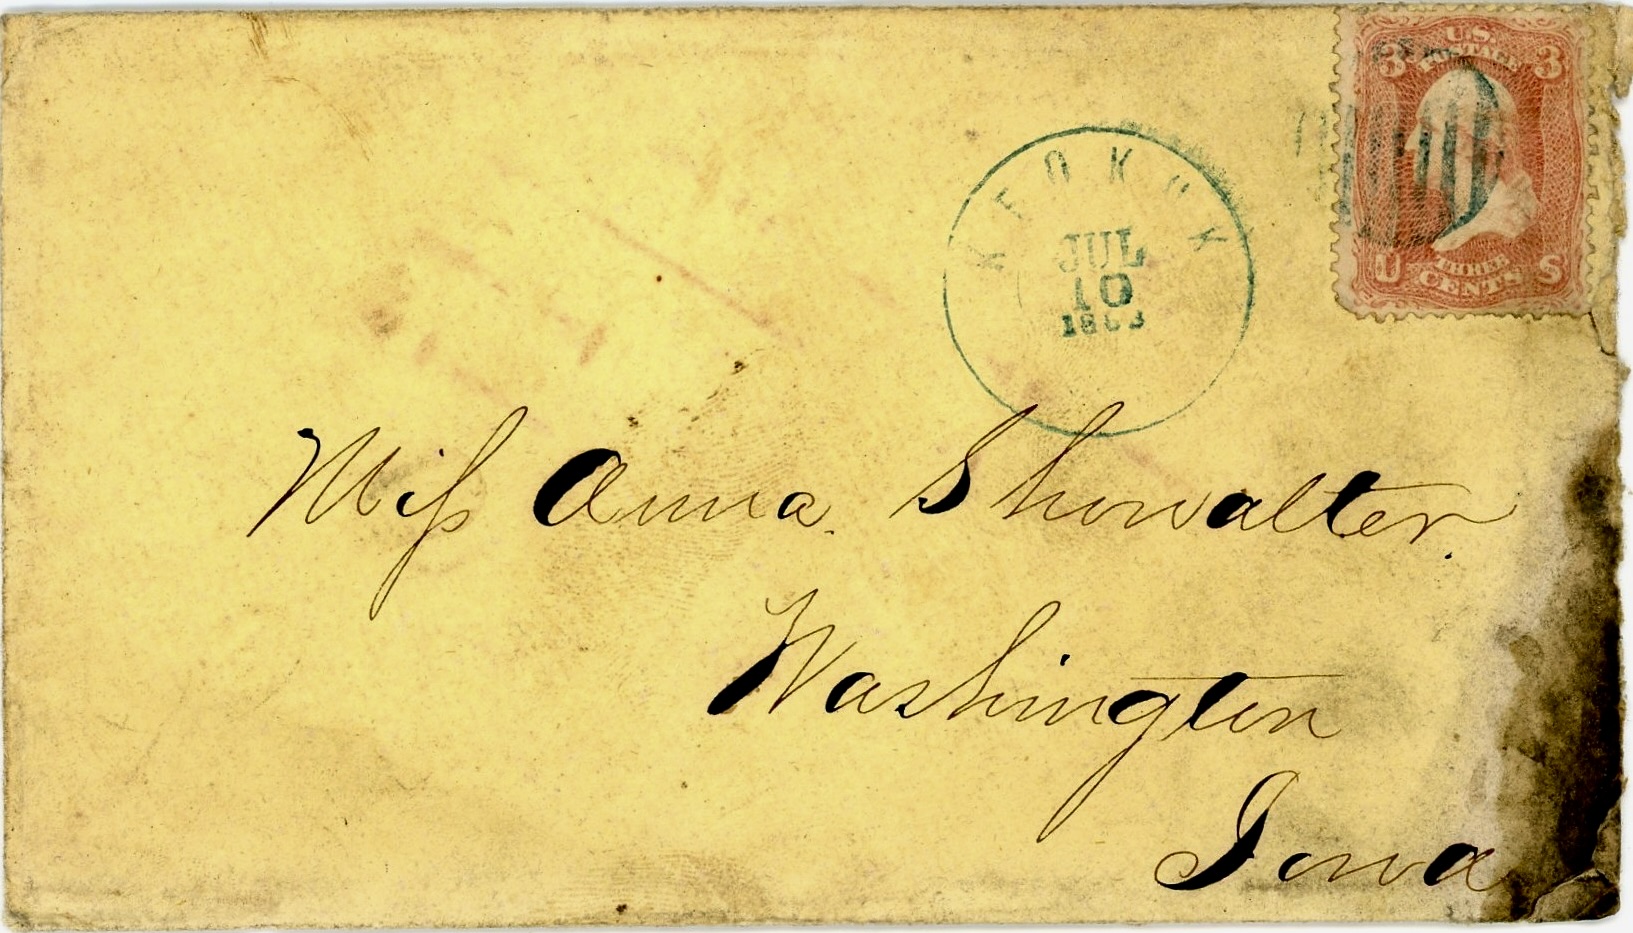 U.S.
POSTAGE
3 3
THREE
U CENTS S
KEOKUK
JUL
10
Miſs Anna Showalter.
Washington
Iowa